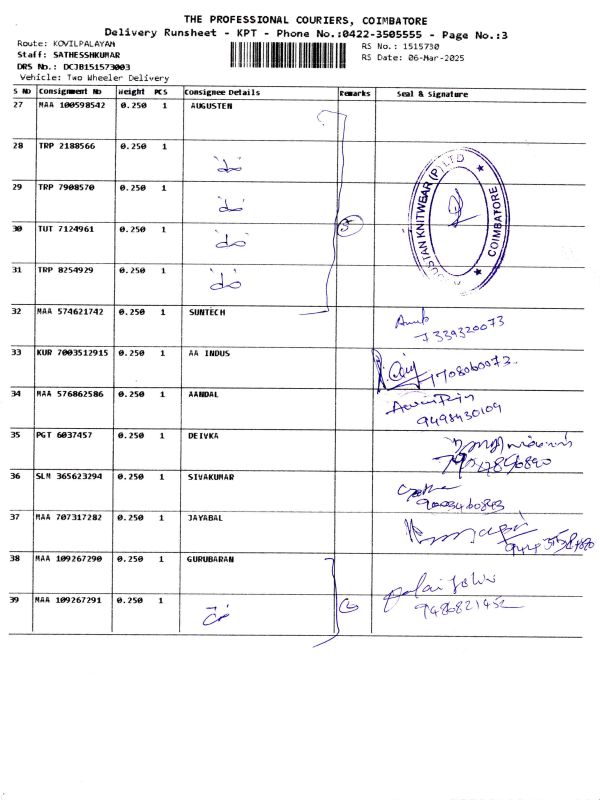 THE PROFESSIONAL COURIERS, COIMBATORE
Delivery Runsheet - KPT - Phone No.:0422-3505555 - Page No.:3
Route: KOVILPALAYAM
RS No.: 1515730
Staff: SATHESSHKUMAR
RS Date: 06-Mar-2025
DRS No.: DCJB151573003
Vehicle: Two Wheeler Delivery
S No Consignment No Weight PCS Consignee Details Remarks Seal & Signature
27 MAA 100598542 0.250 1 AUGUSTEN
28 TRP 2188566 0.250 1
29 TRP 7908570 0.250 1
30 TUT 7124961 0.250 1 5
31 TRP 8254929 0.250 1
KNITWEAR (P) LTD
COIMBATORE
32 MAA 574621742 0.250 1 SUNTECH
7339320073
33 KUR 7003512915 0.250 1 AA INDUS
34 MAA 576862586 0.250 1 AANDAL
9498430109
35 PGT 6037457 0.250 1 DEIVKA
36 SLM 365623294 0.250 1 SIVAKUMAR
37 MAA 707317282 0.250 1 JAYABAL
38 MAA 109267290 0.250 1 GURUBARAN
39 MAA 109267291 0.250 1
9486821452